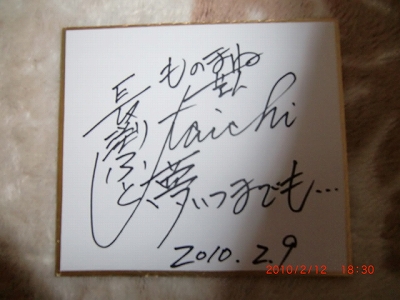 ものまね
芸人
長渕ふ
taichi
と、夢いつまでも…
2010.2.9
2010/2/12 18:30